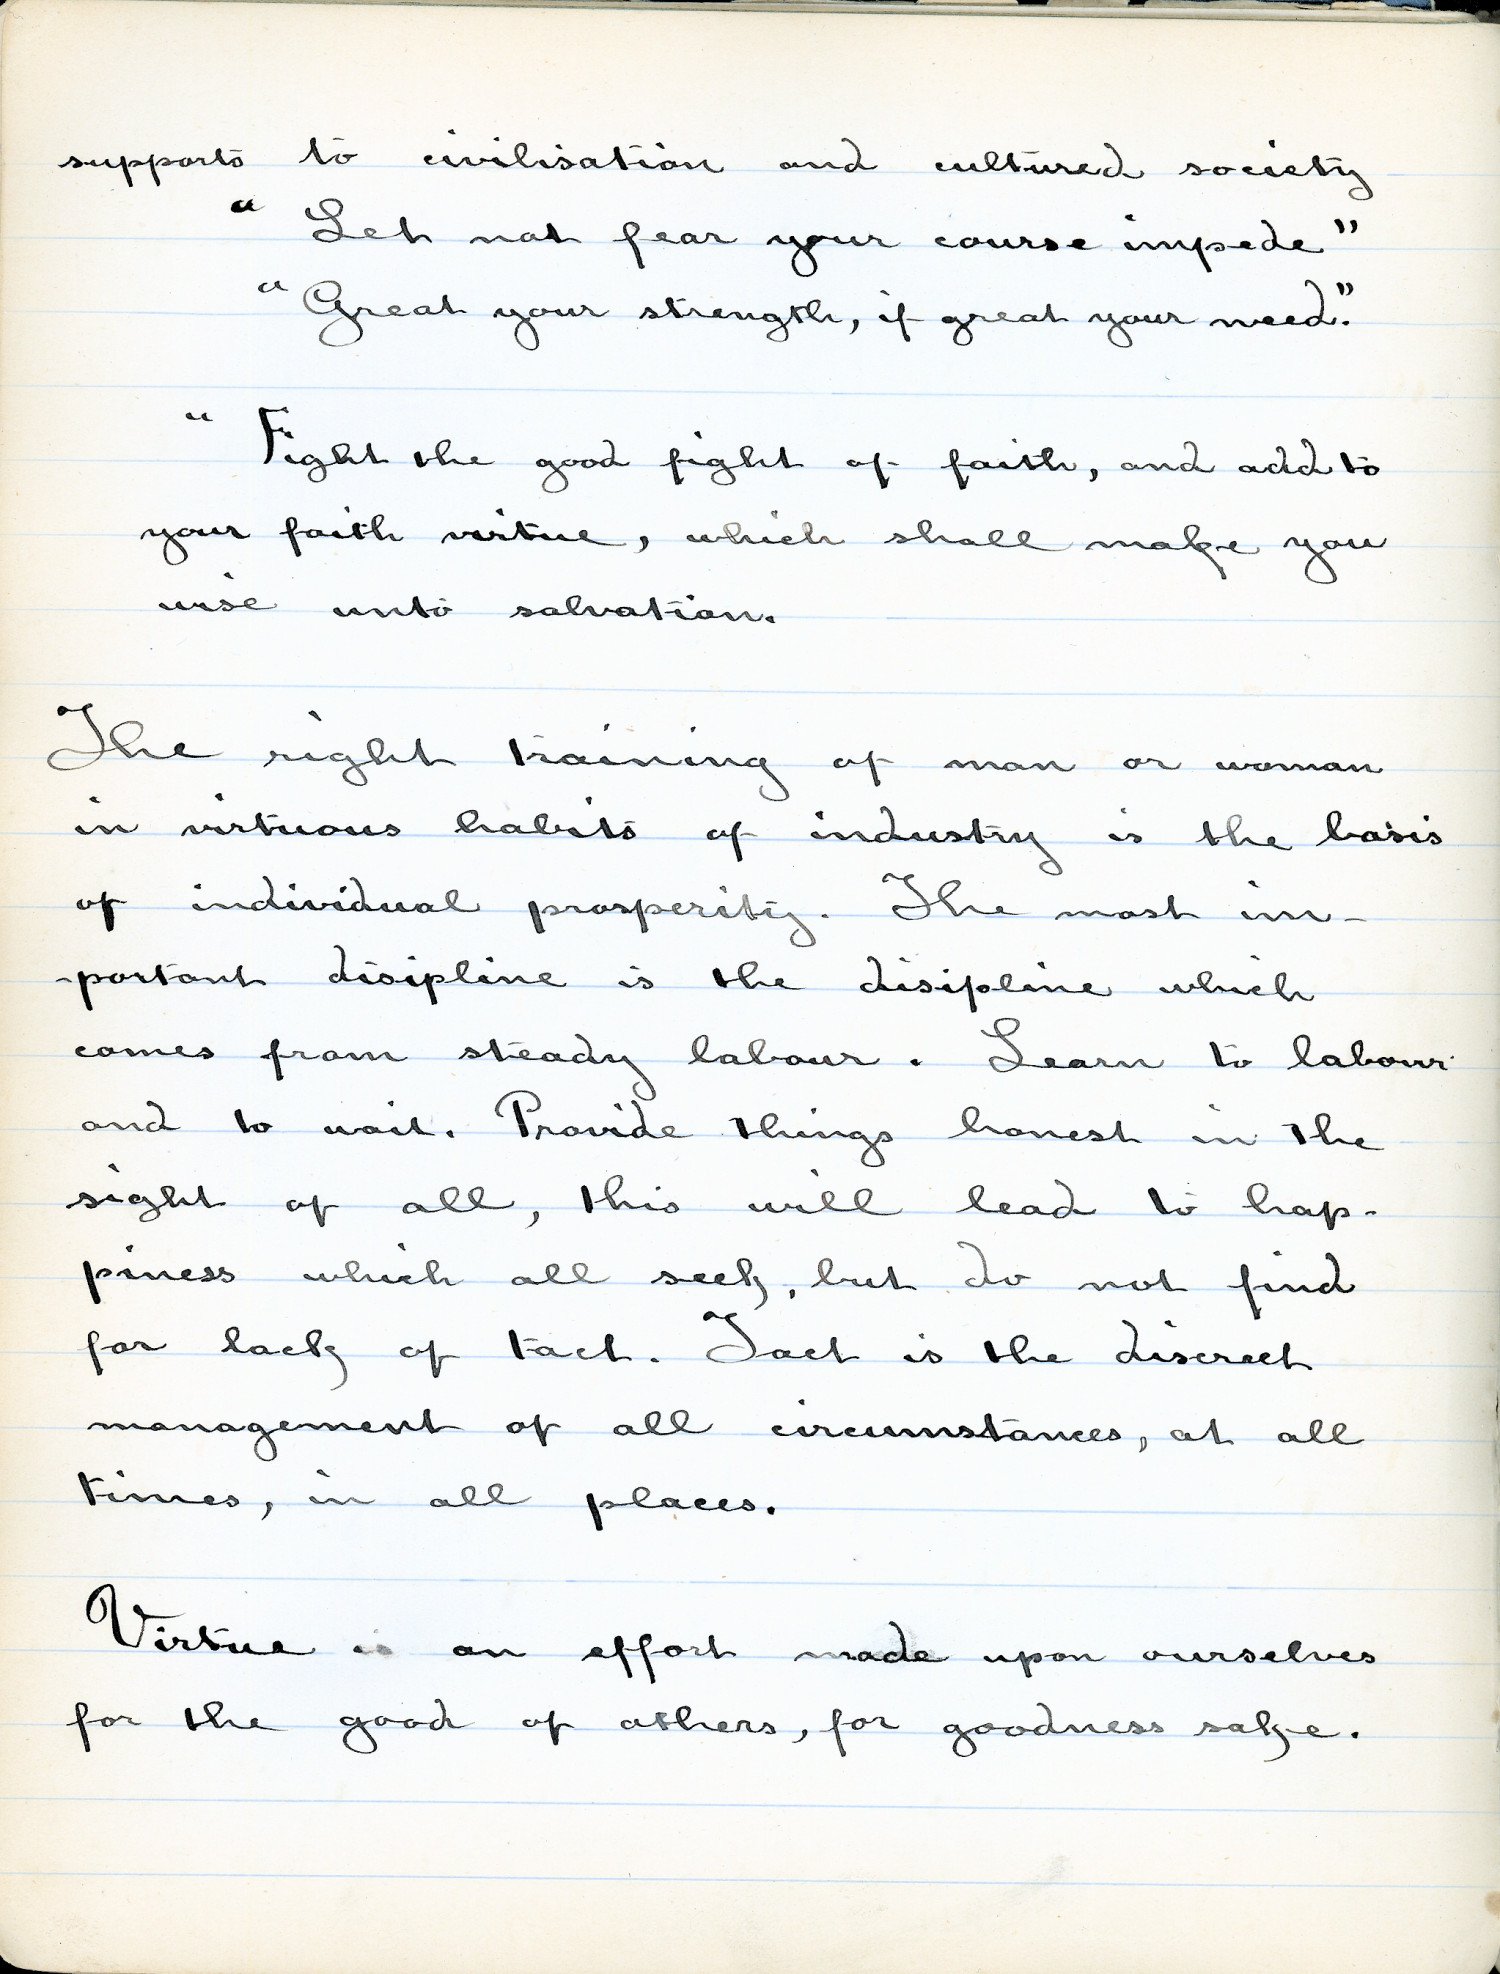 supports to civilisation and cultured society
" Let not fear your course impede"
" Great your strength, if great your need."
" Fight the good fight of faith, and add to
your faith virtue, which shall make you
wise unto salvation.
The right training of man or woman
in virtuous habits of industry is the basis
of individual prosperity. The most im-
-portant disipline is the disipline which
comes from steady labour. Learn to labour
and to wait. Provide things honest in the
sight of all, this will lead to hap-
piness which all seek, but do not find
for lack of tact. Tact is the discreet
management of all circumstances, at all
times, in all places.
Virtue is an effort made upon ourselves
for the good of others, for goodness sake.